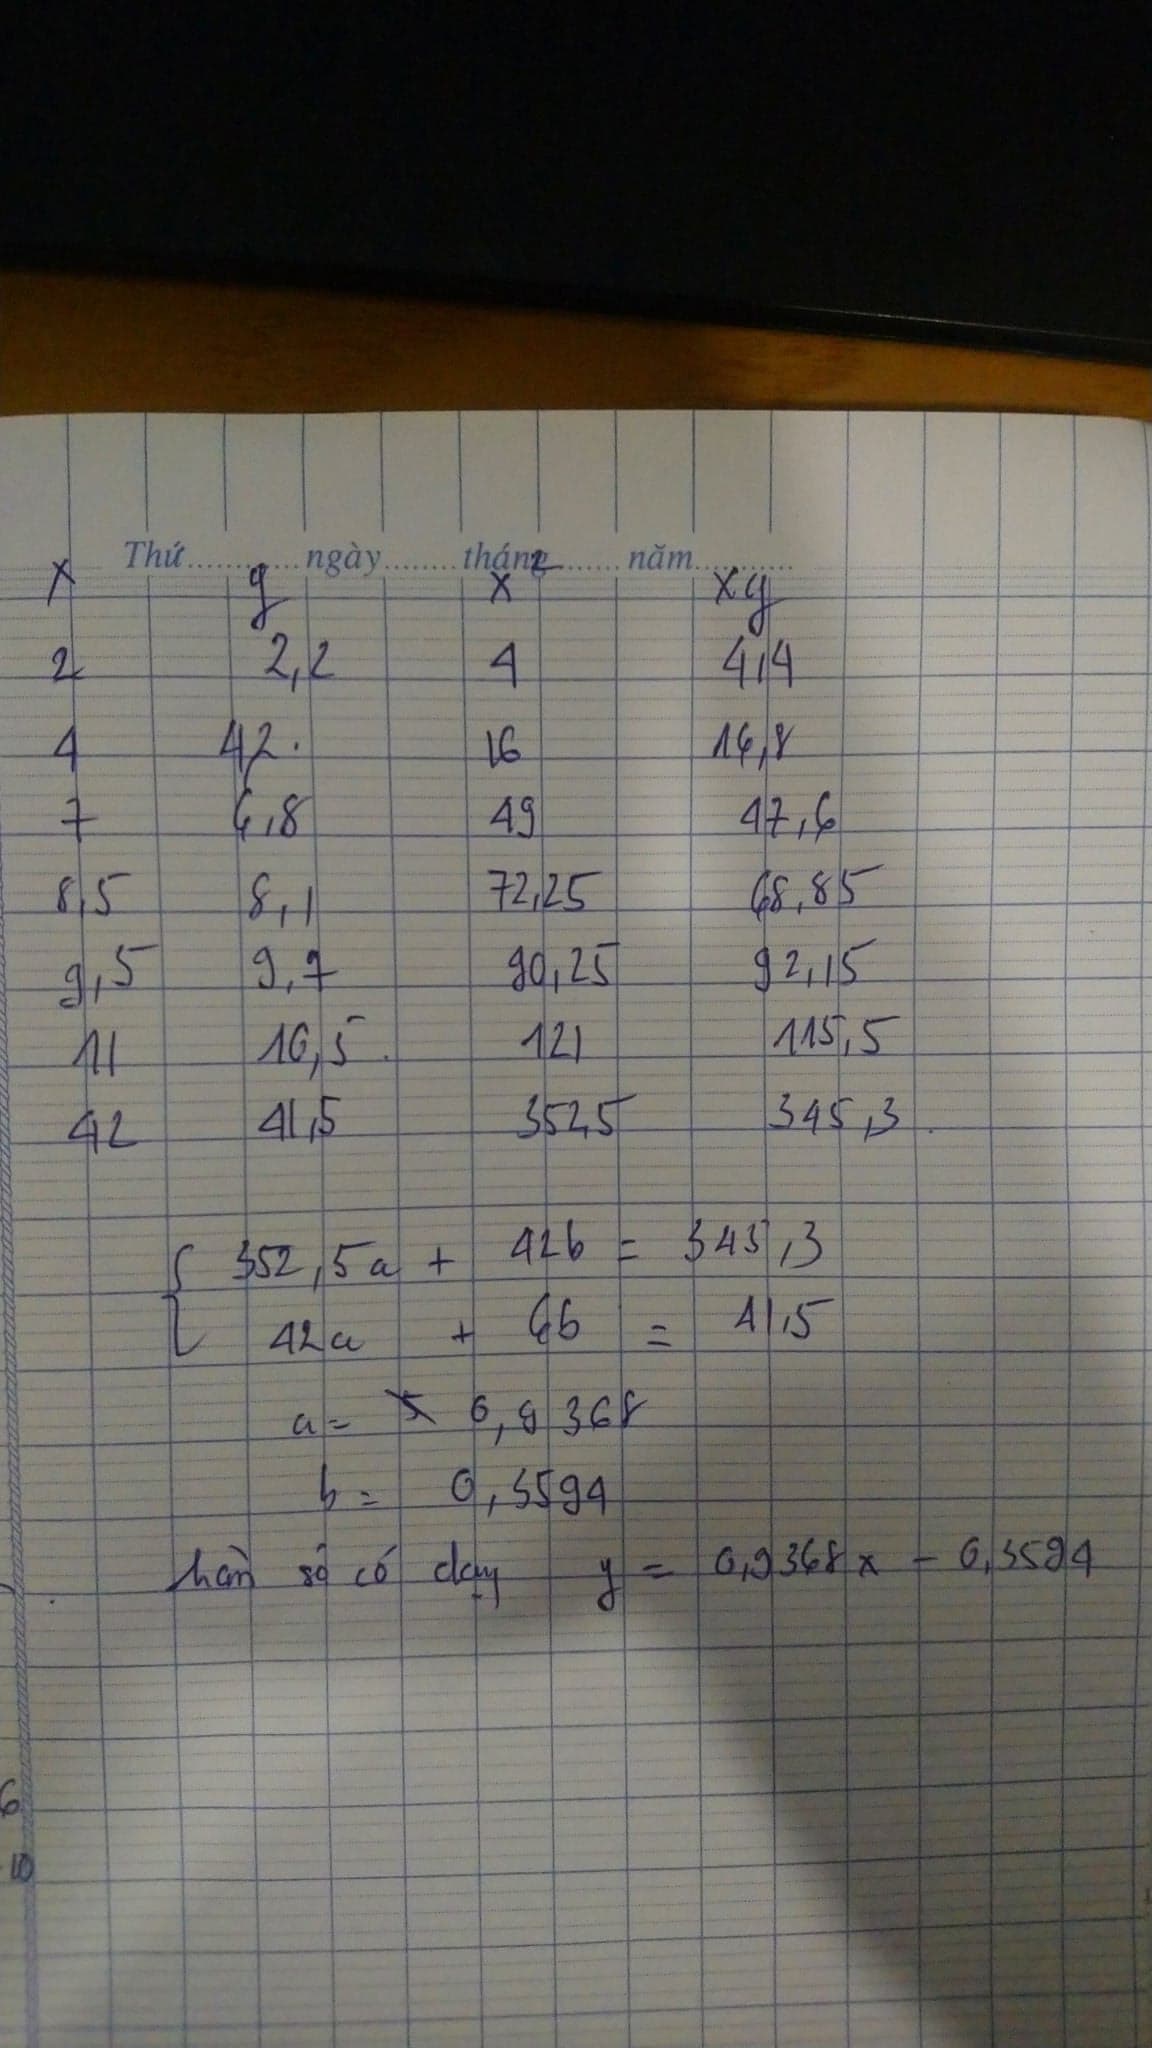 Thứ............ngày........tháng........năm............
x y x² xy
2 2,2 4 4,4
4 42. 16 16,8
7 6,8 49 47,6
8,5 8,1 72,25 68,85
9,5 9,7 90,25 92,15
11 10,5 121 115,5
42 41,5 352,5 345,3
352,5a + 42b = 345,3
42a + 6b = 41,5
a = 0,9368
b = 0,3594
hàn số có dạy y = 0,9368x - 0,3594
6
10